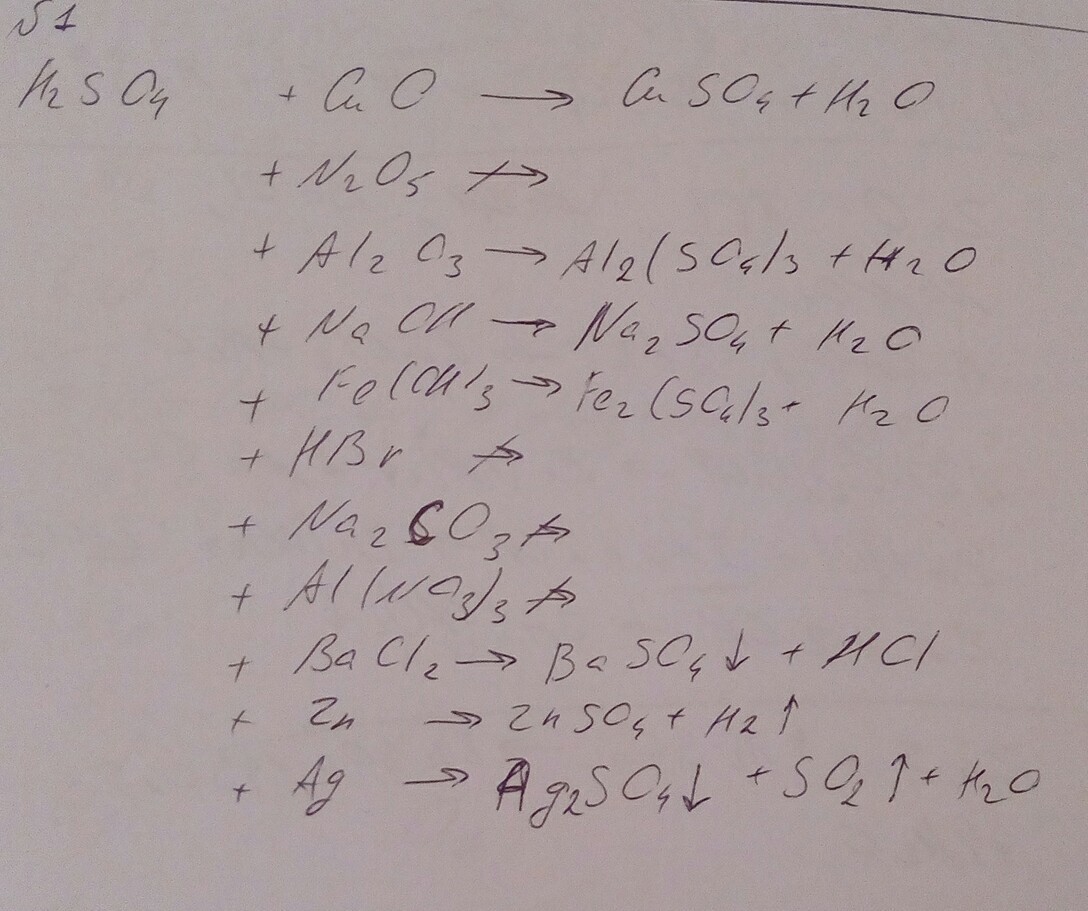 №1
H₂SO₄ + CuO → CuSO₄ + H₂O
+ N₂O₅ ↛
+ Al₂O₃ → Al₂(SO₄)₃ + H₂O
+ NaOH → Na₂SO₄ + H₂O
+ Fe(OH)₃ → Fe₂(SO₄)₃ + H₂O
+ HBr ↛
+ Na₂SO₃ ↛
+ Al(NO₃)₃ ↛
+ BaCl₂ → BaSO₄↓ + HCl
+ Zn → ZnSO₄ + H₂↑
+ Ag → Ag₂SO₄↓ + SO₂↑ + H₂O